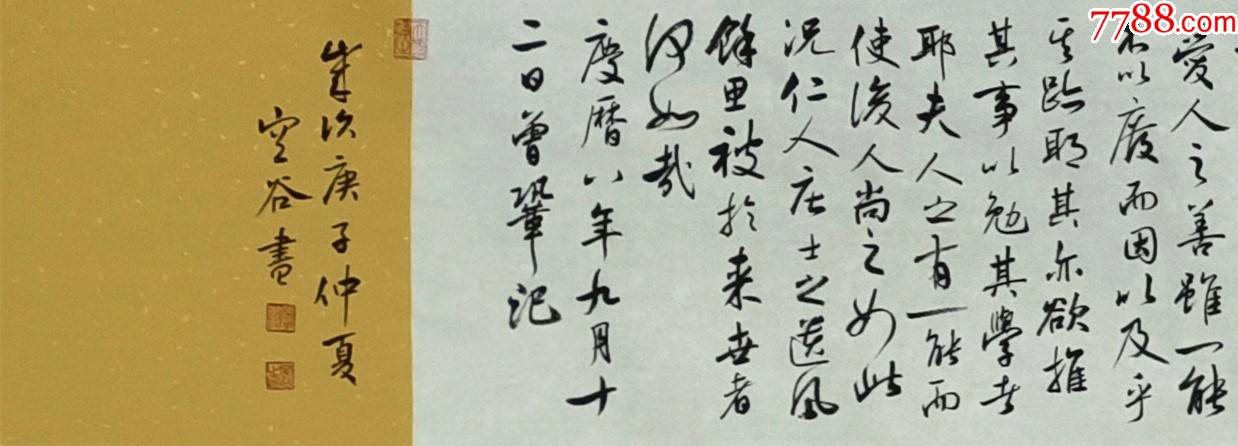 愛人之善雖一能
不以廢而因以及乎
其跡耶其亦欲推
其事以勉其學者
耶夫人之有一能而
使後人尚之如此
况仁人庄士之遺風
餘思被於来世者
何如哉
慶曆八年九月十
二日曾鞏記
歲次庚子仲夏
空谷書
7788.com